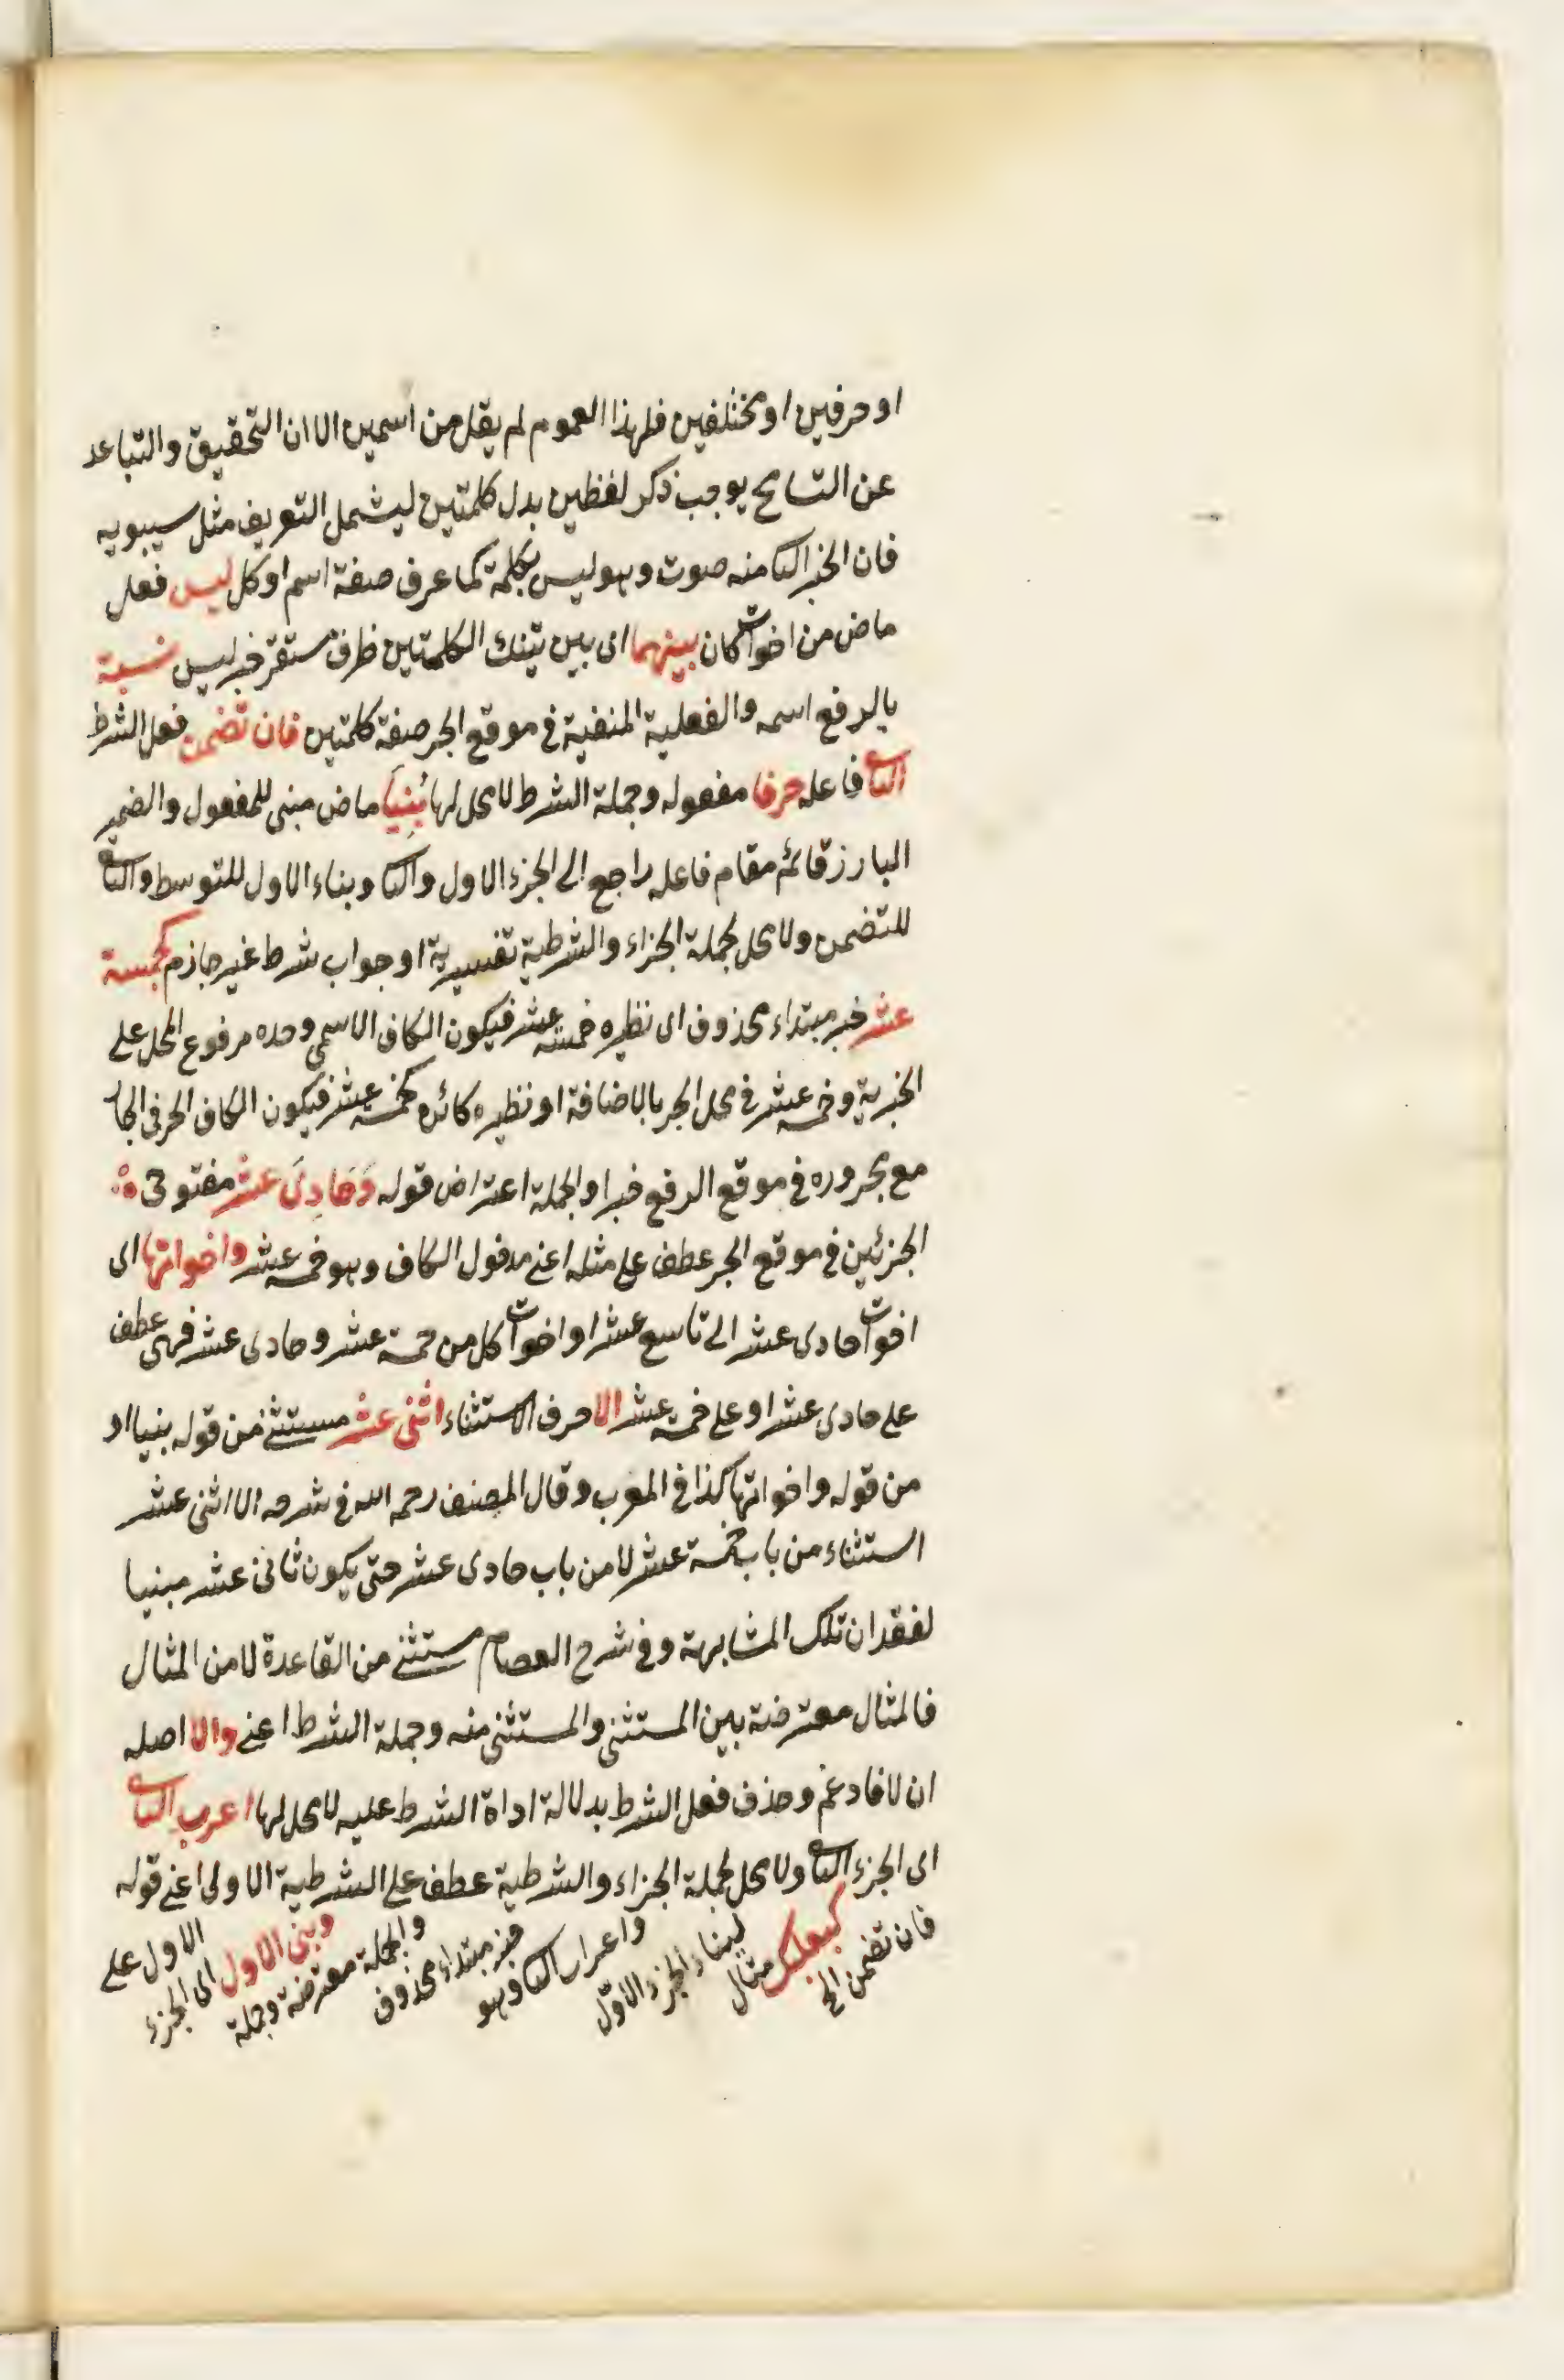 او حرفين او مختلفين فلهذا العموم لم يقل من اسمين الا ان التحقيق والتباعد
عن التسامح يوجب ذكر لفظين بدل كلمتين ليشمل التعريف مثل سيبويه
فان الجزء الثا منه صوت وهو ليس بكلمة كما عرف صفة اسم او كل ليس فعل
ماض من اخوات كان بينهما اى بين تينك الكلمتين ظرف مستقر خبر ليس نسبة
بالرفع اسمه والفعلية المنفية فى موقع الجر صفة كلمتين فان تضمن فعل الشرط
الثانى فاعله حرفا مفعوله وجملة الشرط لا محل لها بُنِيَا ماض مبنى للمفعول والضمير
البارز قائم مقام فاعله راجع الى الجزء الاول والثا وبناء الاول للتوسط والثانى
للتضمن ولا محل لجملة الجزاء والشرطية تفسيرية او جواب شرط غير جازم كخمسة
عشر خبر مبتداء محذوف اى نظيره خمسة عشر فيكون الكاف الاسمى وحده مرفوع المحل على
الخبرية وخمسة عشر فى محل الجر بالاضافة او نظيره كائن كخمسة عشر فيكون الكاف الحرفى الجار
مع مجروره فى موقع الرفع خبرا والجملة اعتراض قوله وَحَادِىَ عشر مفتوحى
الجزئين فى موقع الجر عطف على مثله اعنى مدخول الكاف وهو خمسة عشر واخواتها اى
اخوات حادى عشر الى تاسع عشر او اخوات كل من خمسة عشر وحادى عشر فهى عطف
على حادى عشر او على خمسة عشر الا حرف الاستثناء اثنى عشر مستثنى من قوله بنيا او
من قوله واخواتها كذا فى المعرب وقال المصنف رحمه الله فى شرحه الا اثنى عشر
استثناء من باب خمسة عشر لا من باب حادى عشر حتى يكون ثانى عشر مبنيا
لفقدان تلك المشابهة وفى شرح العصام مستثنى من القاعدة لا من المثال
فالمثال معترضة بين المستثنى والمستثنى منه وجملة الشرط اعنى والا اصله
ان لا فادغم وحذف فعل الشرط بدلالة اداة الشرط عليه لا محل لها اعرب الثانى
اى الجزء الثانى ولا محل لجملة الجزاء والشرطية عطف على الشرطية الاولى اعنى قوله
فان تضمن الخ كبعلبك مثال لبناء الجزء الاوّل واعراب الثا وهو خبر مبتداء محذوف والجملة معترضة وجملة وبنى الاول اى الجزء الاول على